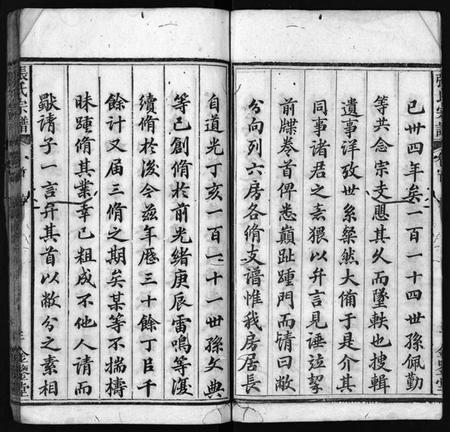 已卅四年矣一百一十四世孫佩勤
等共念宗支應其久而墜軼也搜輯
遺事洋攷世系粲然大備于是介其
同事諸君之素猥以弁言見諈並挈
前牒卷首俾悉巔趾踵門而請曰敝
兮向列六房各脩支譜惟我房居長
自道光丁亥一百一十一世孫文典
等已創脩於前光緒庚辰雷鳴等復
續脩於後今茲年歷三十餘丁臣千
餘計又屆三脩之期矣某等不揣檮
昧踵脩其業幸已粗成不他人請而
歟請子一言弁其首以敝兮之素相
張氏宗譜
金鑒堂